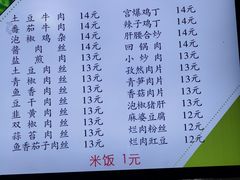 土豆牛肉 14元
番茄牛肉 14元
泡椒鸡杂 14元
酱肉丝 14元
盐煎肉 13元
土豆肉丝 13元
青椒肉丝 13元
鱼香肉丝 13元
豆干肉丝 13元
韭黄肉丝 13元
双椒肉丝 13元
蒜苔肉丝 13元
鱼香茄子肉丝 13元
宫爆鸡丁 14元
辣子鸡丁 14元
肝腰合炒 14元
回锅肉 14元
小炒肉 13元
孜然肉片 13元
青笋肉片 13元
香菇肉片 13元
泡椒猪肝 13元
麻婆豆腐 12元
烂肉粉丝 12元
烂肉豇豆 12元
米饭 1元